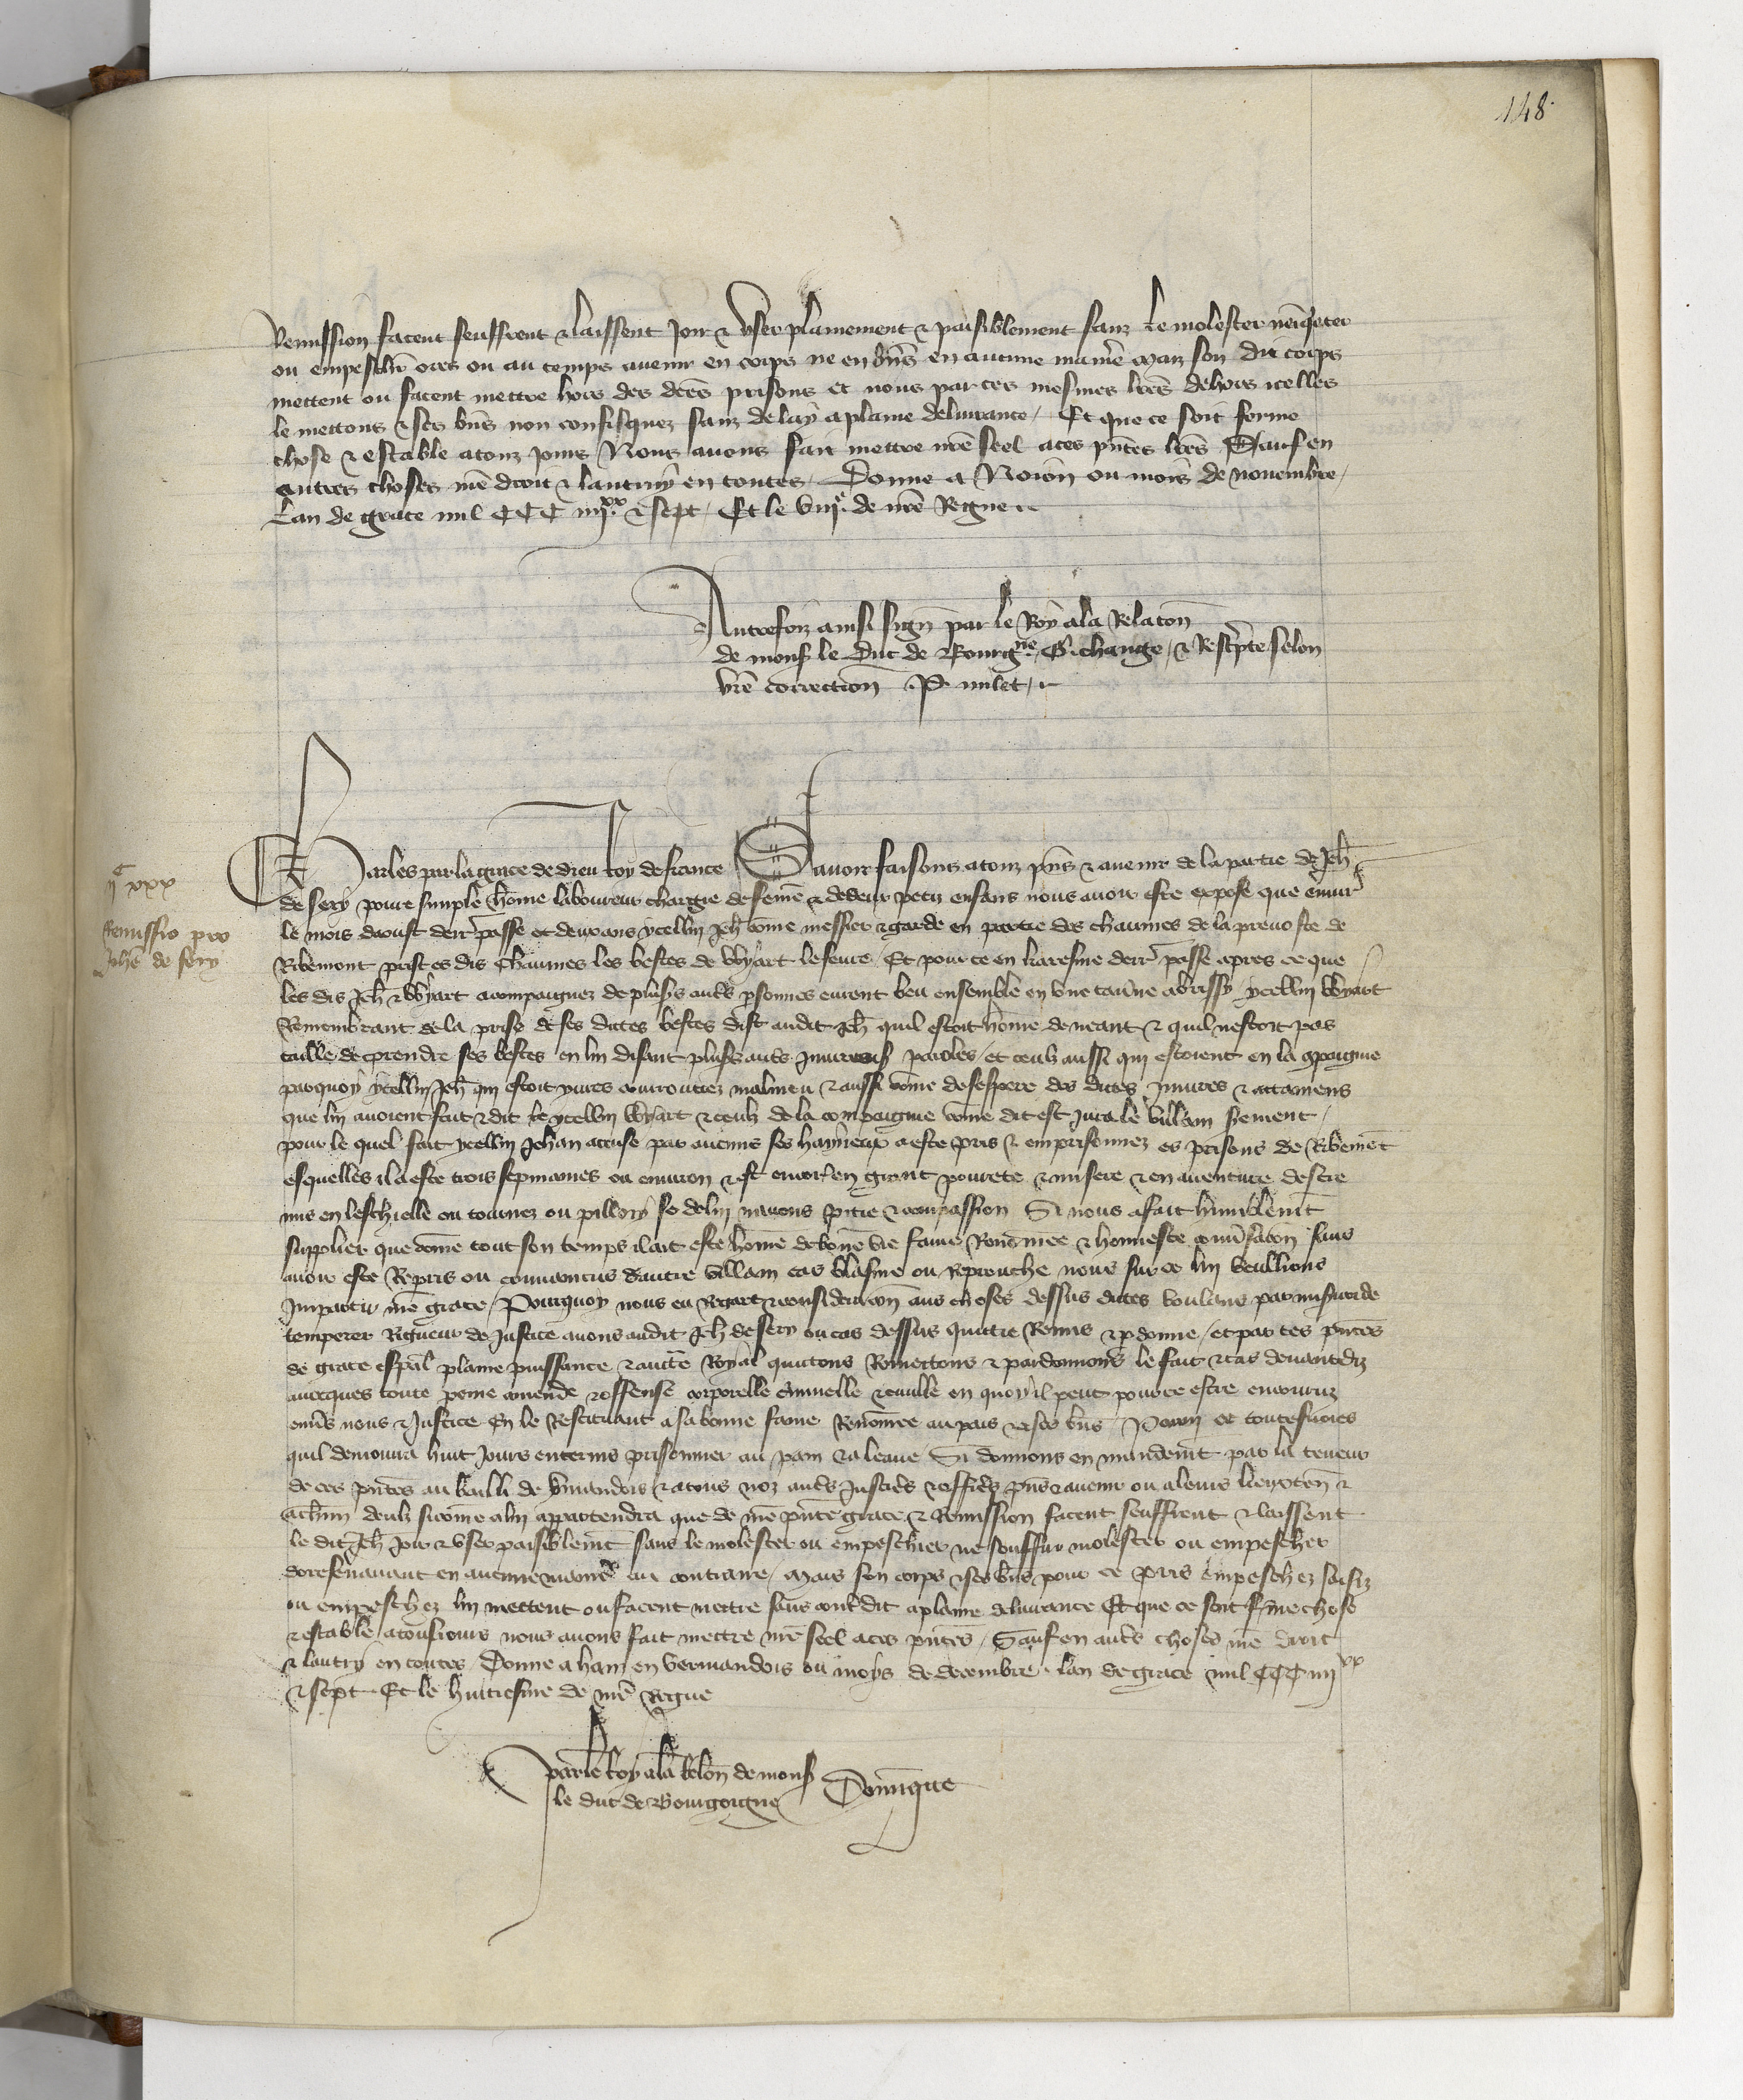 148
Remission facent seuffrent & laissent Joir & User plainement & paisiblement sanz le molester
ou empeschr ores ou au temps avenir en corps ne en biens en aucune maniere maiz son dit corps
mettent ou facent mettre hors des dces prisons et nous par ces mesmes lres dehors icelles
le mettons & ses biens non confisquez sanz delay a plaine delivrance / Et que ce soit ferme
chose & estable a touz jours Nous avons fait mettre nre seel a ces pntes lres Sauf en
autres choses nre droit & lautruy en toutes / Donne a Noion ou mois de novembre /
Lan de grace mil CCC iiijxx & sept / Et le viije de nre Regne
Autrefoiz ainsi sign par le Roy a la Relacon
de mons le Duc de Bourgne G. change / & Rescripte selon
vre correction P. milet /
ijc xxx
Remissio pro
Johe de Sery
Charles par la grace de dieu Roy de france Savoir faisons a touz pns & avenir de la partie de Jeh
de Sery povre simple home laboureur chargie de feme & de deux petiz enfans nous avoir este expose que envir
le mois daoust derr passe et deux ans ycellui Jeh come messier & garde en partie des chaumes de la prevoste de
Ribemont prist es dis Chaumes les bestes de Wyart lefevre / Et pour ce en karesme derr passe apres ce que
les dis Jeh & Wyart acompaignez de plusrs autrs psonnes eurent beu ensemble en une taverne a brissy ycellui Wyart
Remembrant de la prise de ses dictes bestes dist audit Jeh quil estoit home de neant & quil nestoit pas
taille de prendre ses bestes en lui disant plusrs autrs Injurieuses paroles / et ceulz aussi qui estoient en la compaignie
parquoy ycellui Jeh qui estoit yvres courrouciez & aussi come desespere des dictes Injures & attaines
que lui avoient fait & dit le ycellui Wyart & ceulz de la compaignie come dit est Jura le villain serement /
pour le quel fait ycellui Jehan accuse par aucuns ses hayneux a este pris & emprisonnez es prisons de Ribemont
esquelles il a este trois sepmaines ou environ & est encor en grant povrete & misere & en aventure destre
mis en leschielle ou tournez ou pillory se de lui navons pitie & compassion Si nous a fait humblemt
supplier que come tout son temps il ait este home de bone vie fame Renomee & honneste conversacion sans
avoir este Repris ou convaincus dautre villain cas blasme ou Reprouche nous sur ce lui veullions
Impartir nre grace / Pourquoy nous eu Regart & consideracion aus choses dessus dictes voulans par misericorde
temperer Rigueur de Justice avons audit Jeh de Sery ou cas dessus quictie Remis & pdonne / et par ces pntes
de grace espal plaine puissance & aucte Royal quictons Remettons & pardonnons le fait & cas devantdiz
avecques toute peine amende & offense corporelle criminelle & civille en quoy il peut pour ce estre encouruz
envrs nous & Justice En le Restituant a sa bonne fame Renomee au pais & a ses bns / Parmi ce toutesvoies
quil demourra huit jours enterins prisonnier au pain & a leaue Si donnons en mandemt par la teneur
de ces pntes au bailli de Vermandois & a tous noz autrs Justicrs & officrs pns & avenir ou a leurs lieuxten &
a chun deulz si come a lui appartendra que de nre pnte grace & Remission facent seuffrent & laissent
le dit Jeh Joir & User paisiblemt sans le molester ou empeschier ne souffrir molester ou empescher
doresenavant en aucune maniere au contraire / Mais son corps & ses bns pour ce pris empeschez saisiz
ou empeschez lui mettent ou facent mettre sans contredit a plaine delivrance Et que ce soit ferme chose
& estable a tousjours nous avons fait mettre nre seel a ces pntes / Sauf en autrs choses nre droit
& lautry en toutes Donne a ham en Vermandois ou moys de decembre lan de grace mil CCC iiijxx
& sept Et le huitiesme de nre Regne
par le Roy a la Relon de mons
le duc de Bourgoigne Dominque